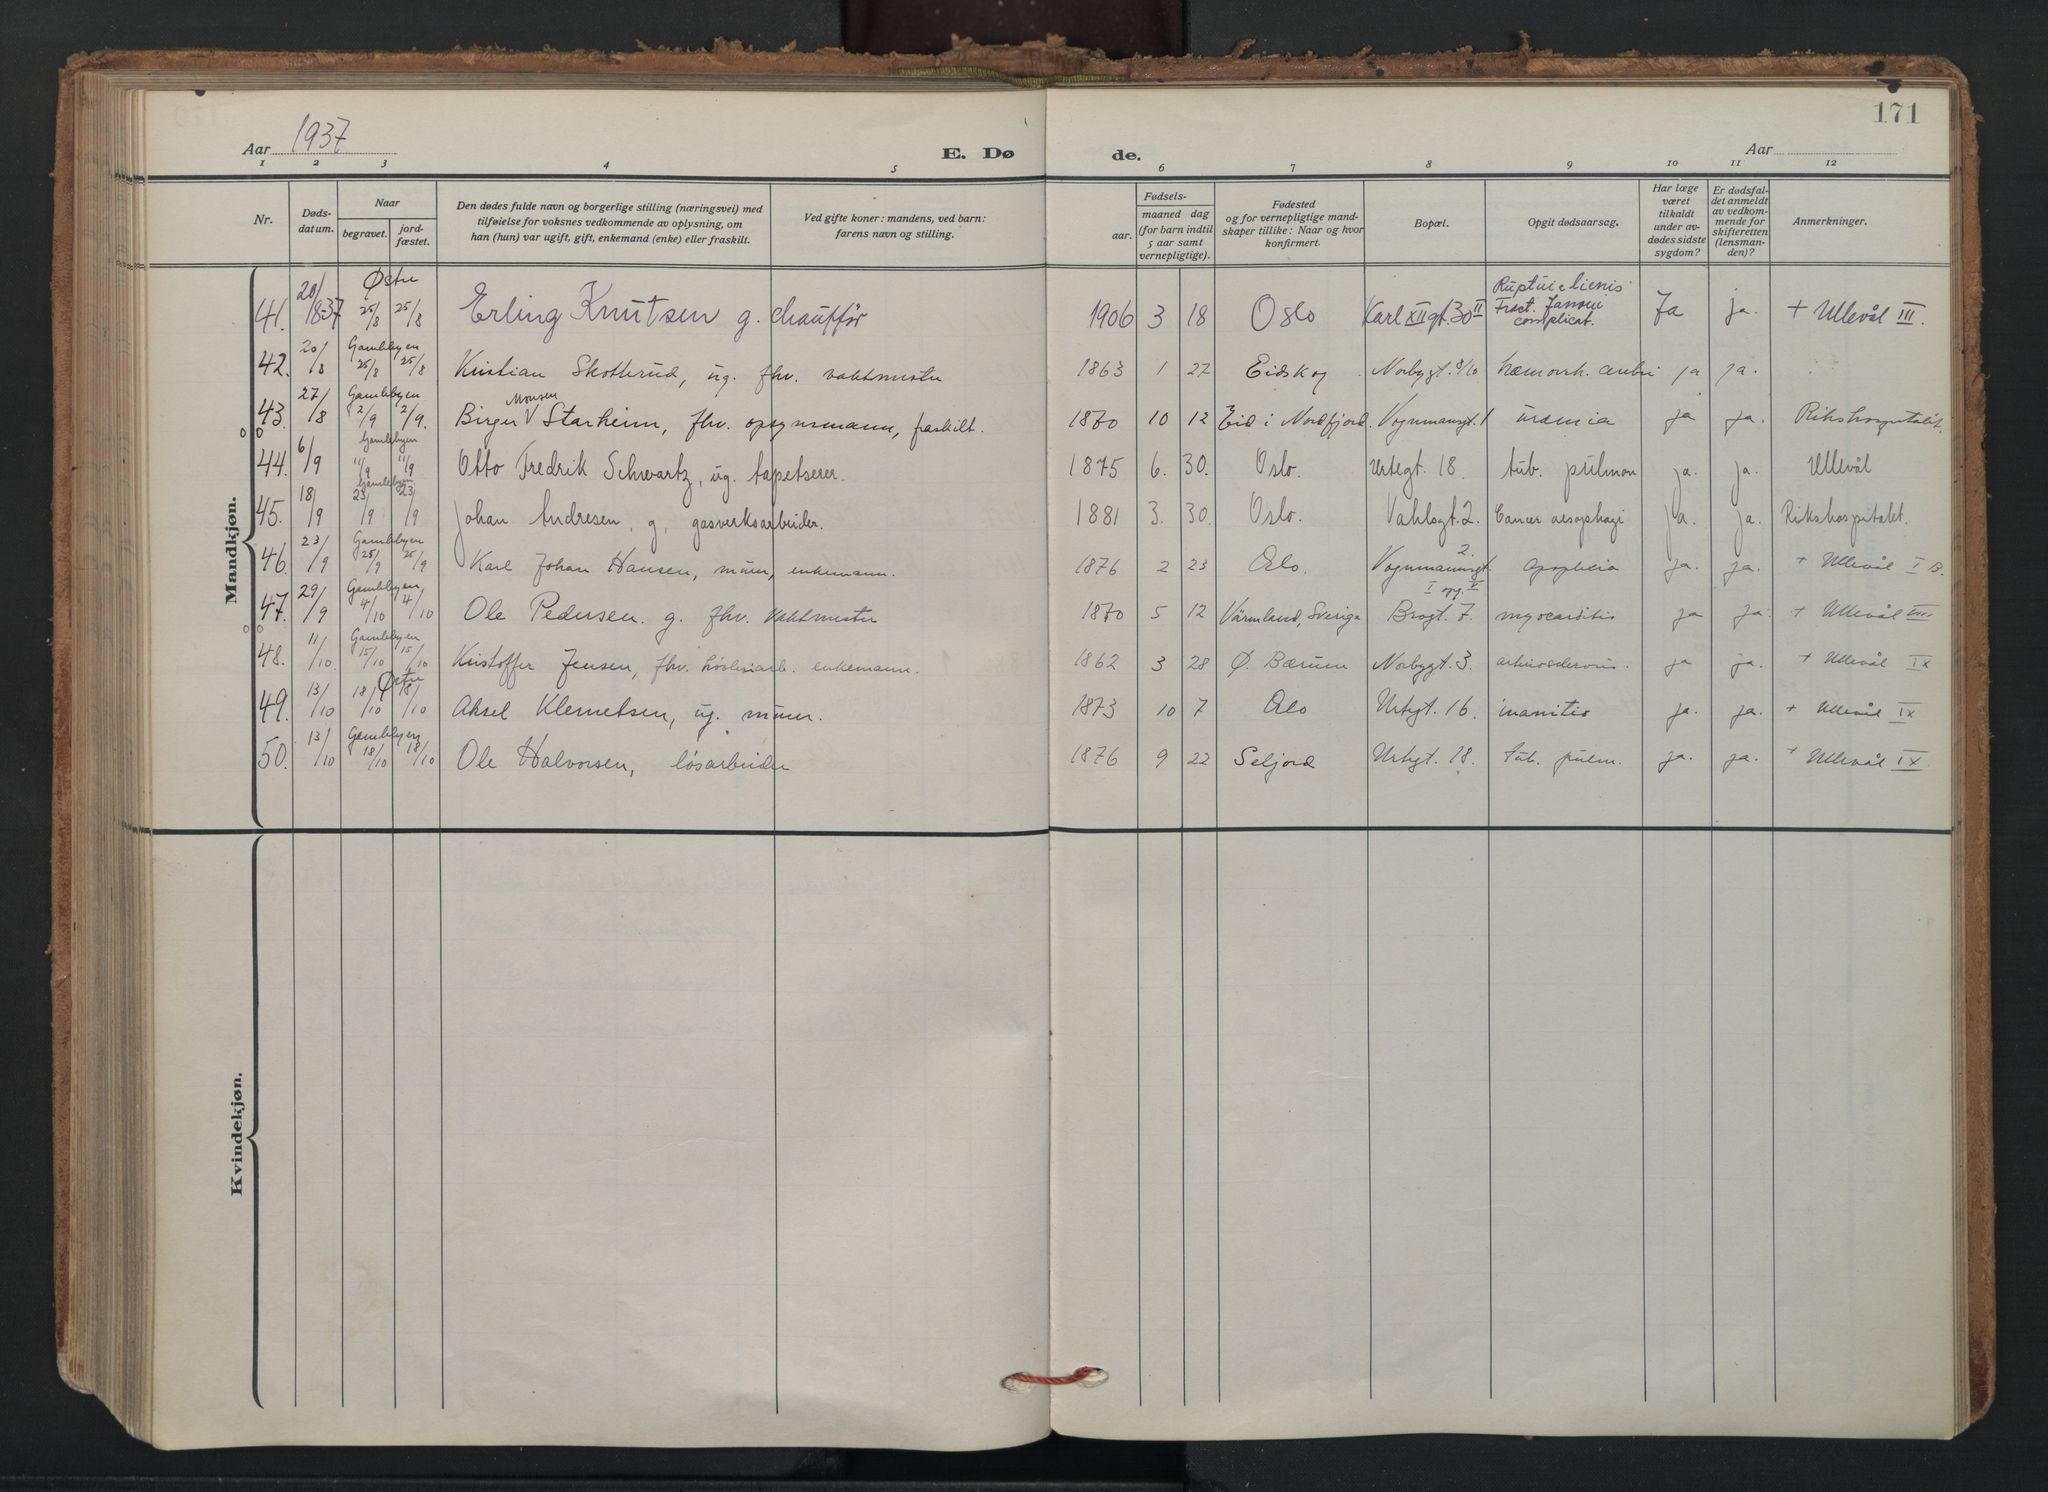 171
Aar 1937
E. Dø
de.
Aar
1 2 3 4 5 6 7 8 9 10 11 12
Nr.
Døds-
datum.
Naar
begravet.
jord-
fæstet.
Den dødes fulde navn og borgerlige stilling (næringsvei) med
tilføielse for voksnes vedkommende av oplysning, om
han (hun) var ugift, gift, enkemand (enke) eller fraskilt.
Ved gifte koner: mandens, ved barn:
farens navn og stilling.
Fødsels-
aar.
maaned dag
(for barn indtil
5 aar samt
vernepligtige).
Fødested
og for vernepligtige mand-
skaper tillike: Naar og hvor
konfirmert.
Bopæl.
Opgit dødsaarsag.
Har læge
været
tilkaldt
under av-
dødes sidste
sygdom?
Er dødsfal-
det anmeldt
av vedkom-
mende for
skifteretten
(lensman-
den)?
Anmerkninger.
Mandkjøn.
Østre
41. 20/8-37 25/8 25/8 Erling Knutsen g. chauffør 1906 3 18 Oslo Karl XII gt. 30 II Fract. complicat. Ja ja. + Ullevål III.
Gamlebyen
42. 20/8 25/8 25/8 Kristian Skotterud, ug. fhv. vaktmester 1863 1 27 Eidskog Norbygt. 8/10 hæmorrh. ja ja.
Gamlebyen
Monsen
43. 27/8 2/9 2/9. Birger V Starheim, fhv. opsynsmann, fraskilt. 1870 10 12 Eid i Nordfjord. Vognmannsgt. 1 uræmia ja ja. Rikshospitalet.
Gamlebyen
44. 6/9 11/9 11/9 Otto Fredrik Schwartz, ug. tapetserer. 1875 6. 30. Oslo. Urtegt. 18. tub. pulmon ja. ja. Ullevål
Gamlebyen
45. 18/9 23/9 23/9 Johan Andresen, g, gasverksarbeider. 1881 3. 30. Oslo. Vahlsgt. 2. Cancer oesophagi ja. ja. Rikshospitalet.
Gamlebyen
46. 23/9 25/9 25/9 Karl Johan Hansen, murer, enkemann. 1876 2 23 Oslo. Vognmannsgt. 2. I opg. V apoplexia ja. ja. + Ullevål I B.
Gamlebyen
47. 29/9 4/10 4/10 Ole Pedersen. g. fhv. vaktmester 1870 5 12 Värmland, Sverige Brogt. 7. myocarditis ja ja. + Ullevål VIII
Gamlebyen
48. 11/10. 15/10 15/10 Kristoffer Jensen, fhv. enkemann. 1862 3 28 Ø. Bærum Norbygt. 3. ja ja. + Ullevål IX
Østre
49. 13/10 18/10 18/10 Aksel Klemetsen, ug. murer. 1873 10 7 Oslo Urtegt. 16. inanitio ja. ja. + Ullevål IX
Gamlebyen
50. 13/10 18/10 18/10 Ole Halvorsen, løsarbeider 1876 9 22 Seljord Urtegt. 18. tub. pulm. ja. ja. + Ullevål IX
Kvindekjøn.